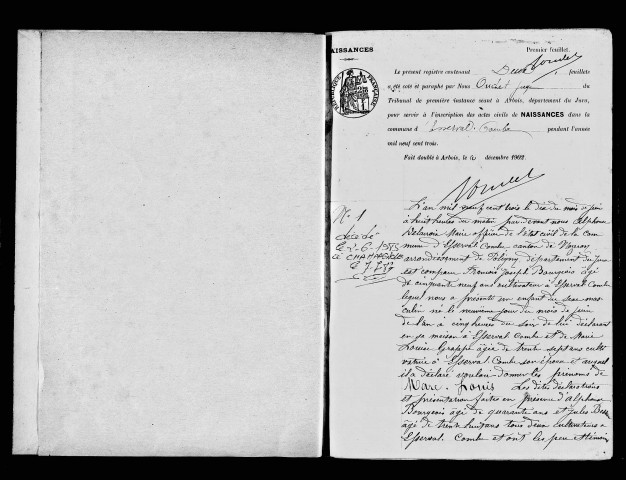 NAISSANCES
Premier feuillet.
Le présent registre contenant Deux feuillets
a été coté et paraphé par Nous Juge du
Tribunal de première instance séant à Arbois, département du Jura,
pour servir à l'inscription des actes civils de NAISSANCES dans la
commune d'Esserval-Combe pendant l'année
mil neuf cent trois.
Fait double à Arbois, le décembre 1902.
RÉPUBLIQUE FRANÇAISE
N° 1
décédé
L'an mil neuf cent trois le dix du mois de juin
à huit heures du matin par devant nous Alphonse
Maire officier de l'état civil de la com
mune d'Esserval Combe canton de Nozeroy
arrondissement de Poligny département du Jura
est comparu François Joseph Bourgeois âgé
de cinquante neuf ans cultivateur à Esserval Combe
lequel nous a présenté un enfant du sexe mas
culin né le neuvième jour du mois de juin
de l'an à cinq heures du soir de lui déclarant
en sa maison à Esserval Combe et de Marie
Louise Grappe âgée de trente sept ans culti
vatrice à Esserval Combe son épouse et auquel
il a déclaré vouloir donner les prénoms de
Marc-Louis Les dites déclarations
et présentation faites en présence d'Alphonse
Bourgeois âgé de quarante ans et Jules
âgé de trente huit ans tous deux cultivateurs à
Esserval Combe et ont les père et témoins